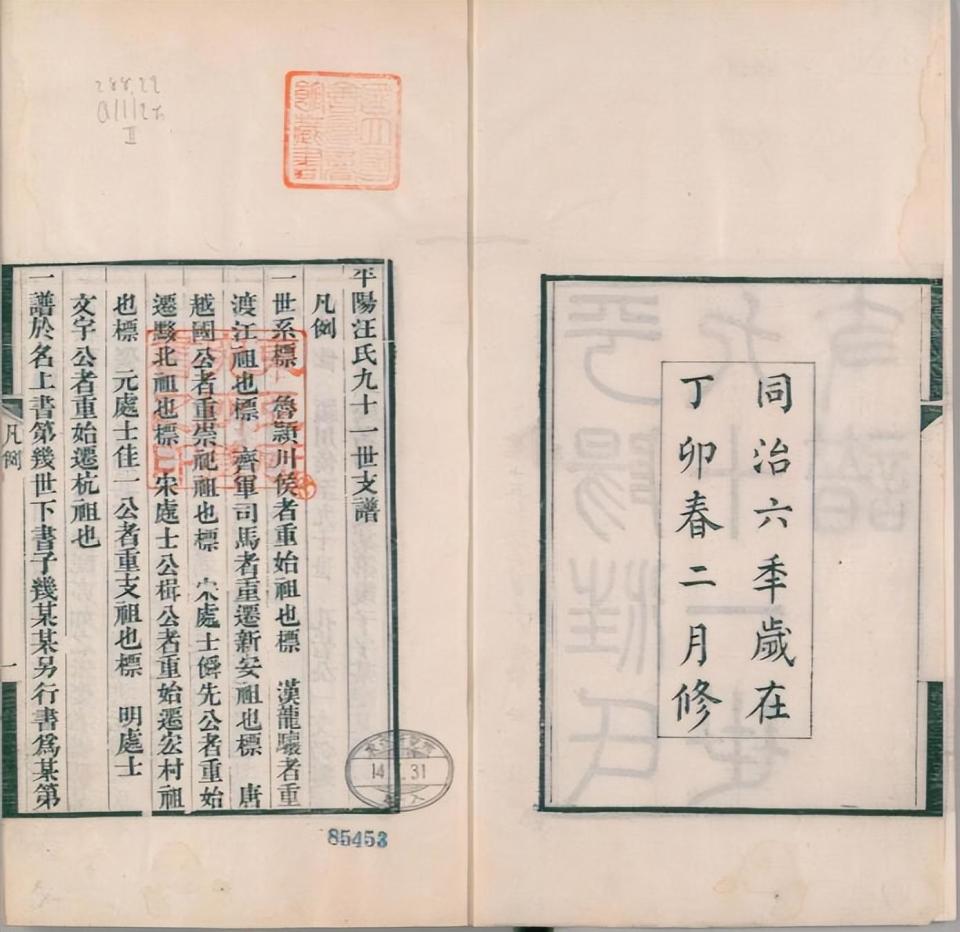 同治六秊歲在
丁卯春二月修
平陽汪氏九十一世支譜
凡例
一世系標 魯潁川侯者重始祖也標 漢龍驤者重
渡江祖也標 齊軍司馬者重遷新安祖也標 唐
越國公者重崇祀祖也標 宋處士僻先公者重始
遷黟北祖也標 宋處士公楫公者重始遷宏村祖
也標 元處士佳一公者重支祖也標 明處士
文宇公者重始遷杭祖也
一譜於名上書第幾世下書子幾某某另行書爲某第
凡例
一
85453
14. .31
288.22
II